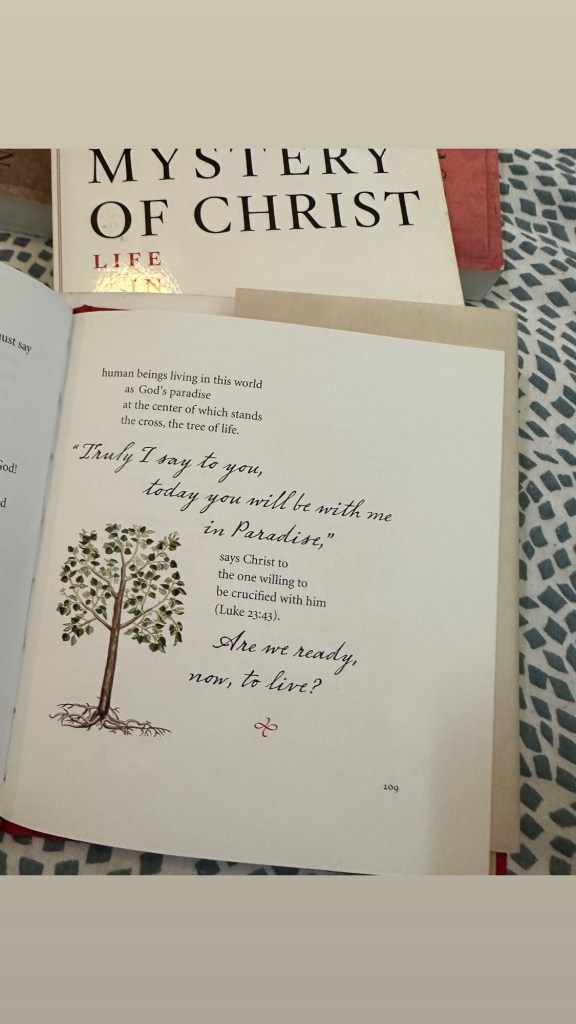 MYSTERY
OF CHRIST
LIFE
IN
ust say
God!
human beings living in this world
as God's paradise
at the center of which stands
the cross, the tree of life.
“Truly I say to you,
today you will be with me
in Paradise,”
says Christ to
the one willing to
be crucified with him
(Luke 23:43).
Are we ready,
now, to live?
109